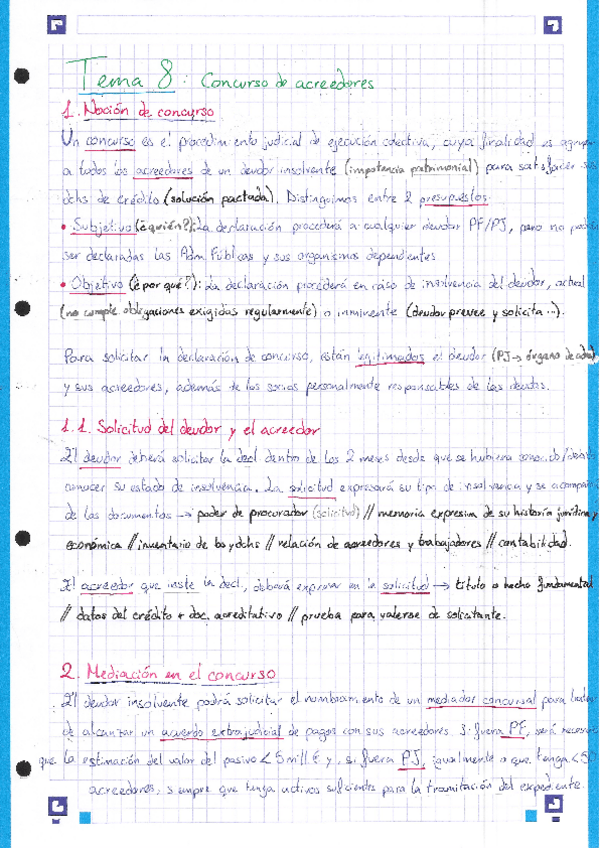 Tema 8: Concurso de acreedores
1. Noción de concurso
Un concurso es el procedimiento judicial de ejecución colectiva, cuya finalidad es agrupar
a todos los acreedores de un deudor insolvente (impotencia patrimonial) para satisfacer sus
dchs de crédito (solución pactada). Distinguimos entre 2 presupuestos:
• Subjetivo (¿quién?): La declaración procederá a cualquier deudor PF/PJ, pero no
ser declaradas las Adm Públicas y sus organismos dependientes
• Objetivo (¿por qué?): La declaración procederá en caso de insolvencia del deudor, actual
(no cumple obligaciones exigidas regularmente) o inminente (deudor prevee y solicita ...).
Para solicitar la declaración de concurso, están legitimados el deudor (PJ → órgano de
y sus acreedores, además de los socios personalmente responsables de las deudas.
1.1. Solicitud del deudor y el acreedor
El deudor deberá solicitar la decl dentro de los 2 meses desde que se hubiera conocido/
conocer su estado de insolvencia. La solicitud expresará su tipo de insolvencia y se
de los documentos → poder de procurador (solicitud) // memoria expresiva de su historia jurídica y
económica // inventario de bs y dchs // relación de acreedores y trabajadores // contabilidad.
El acreedor que inste la decl, deberá expresar en la solicitud → título o hecho fundamental
// datos del crédito + doc. acreditativo // prueba para valerse de solicitante.
2. Mediación en el concurso
El deudor insolvente podrá solicitar el nombramiento de un mediador concursal para
de alcanzar un acuerdo extrajudicial de pagos con sus acreedores. Si fuera PF, será
que la estimación del valor del pasivo < 5 mill. € y, si fuera PJ, igualmente o que tenga < 5
acreedores, siempre que tenga activos suficientes para la tramitación del expediente.